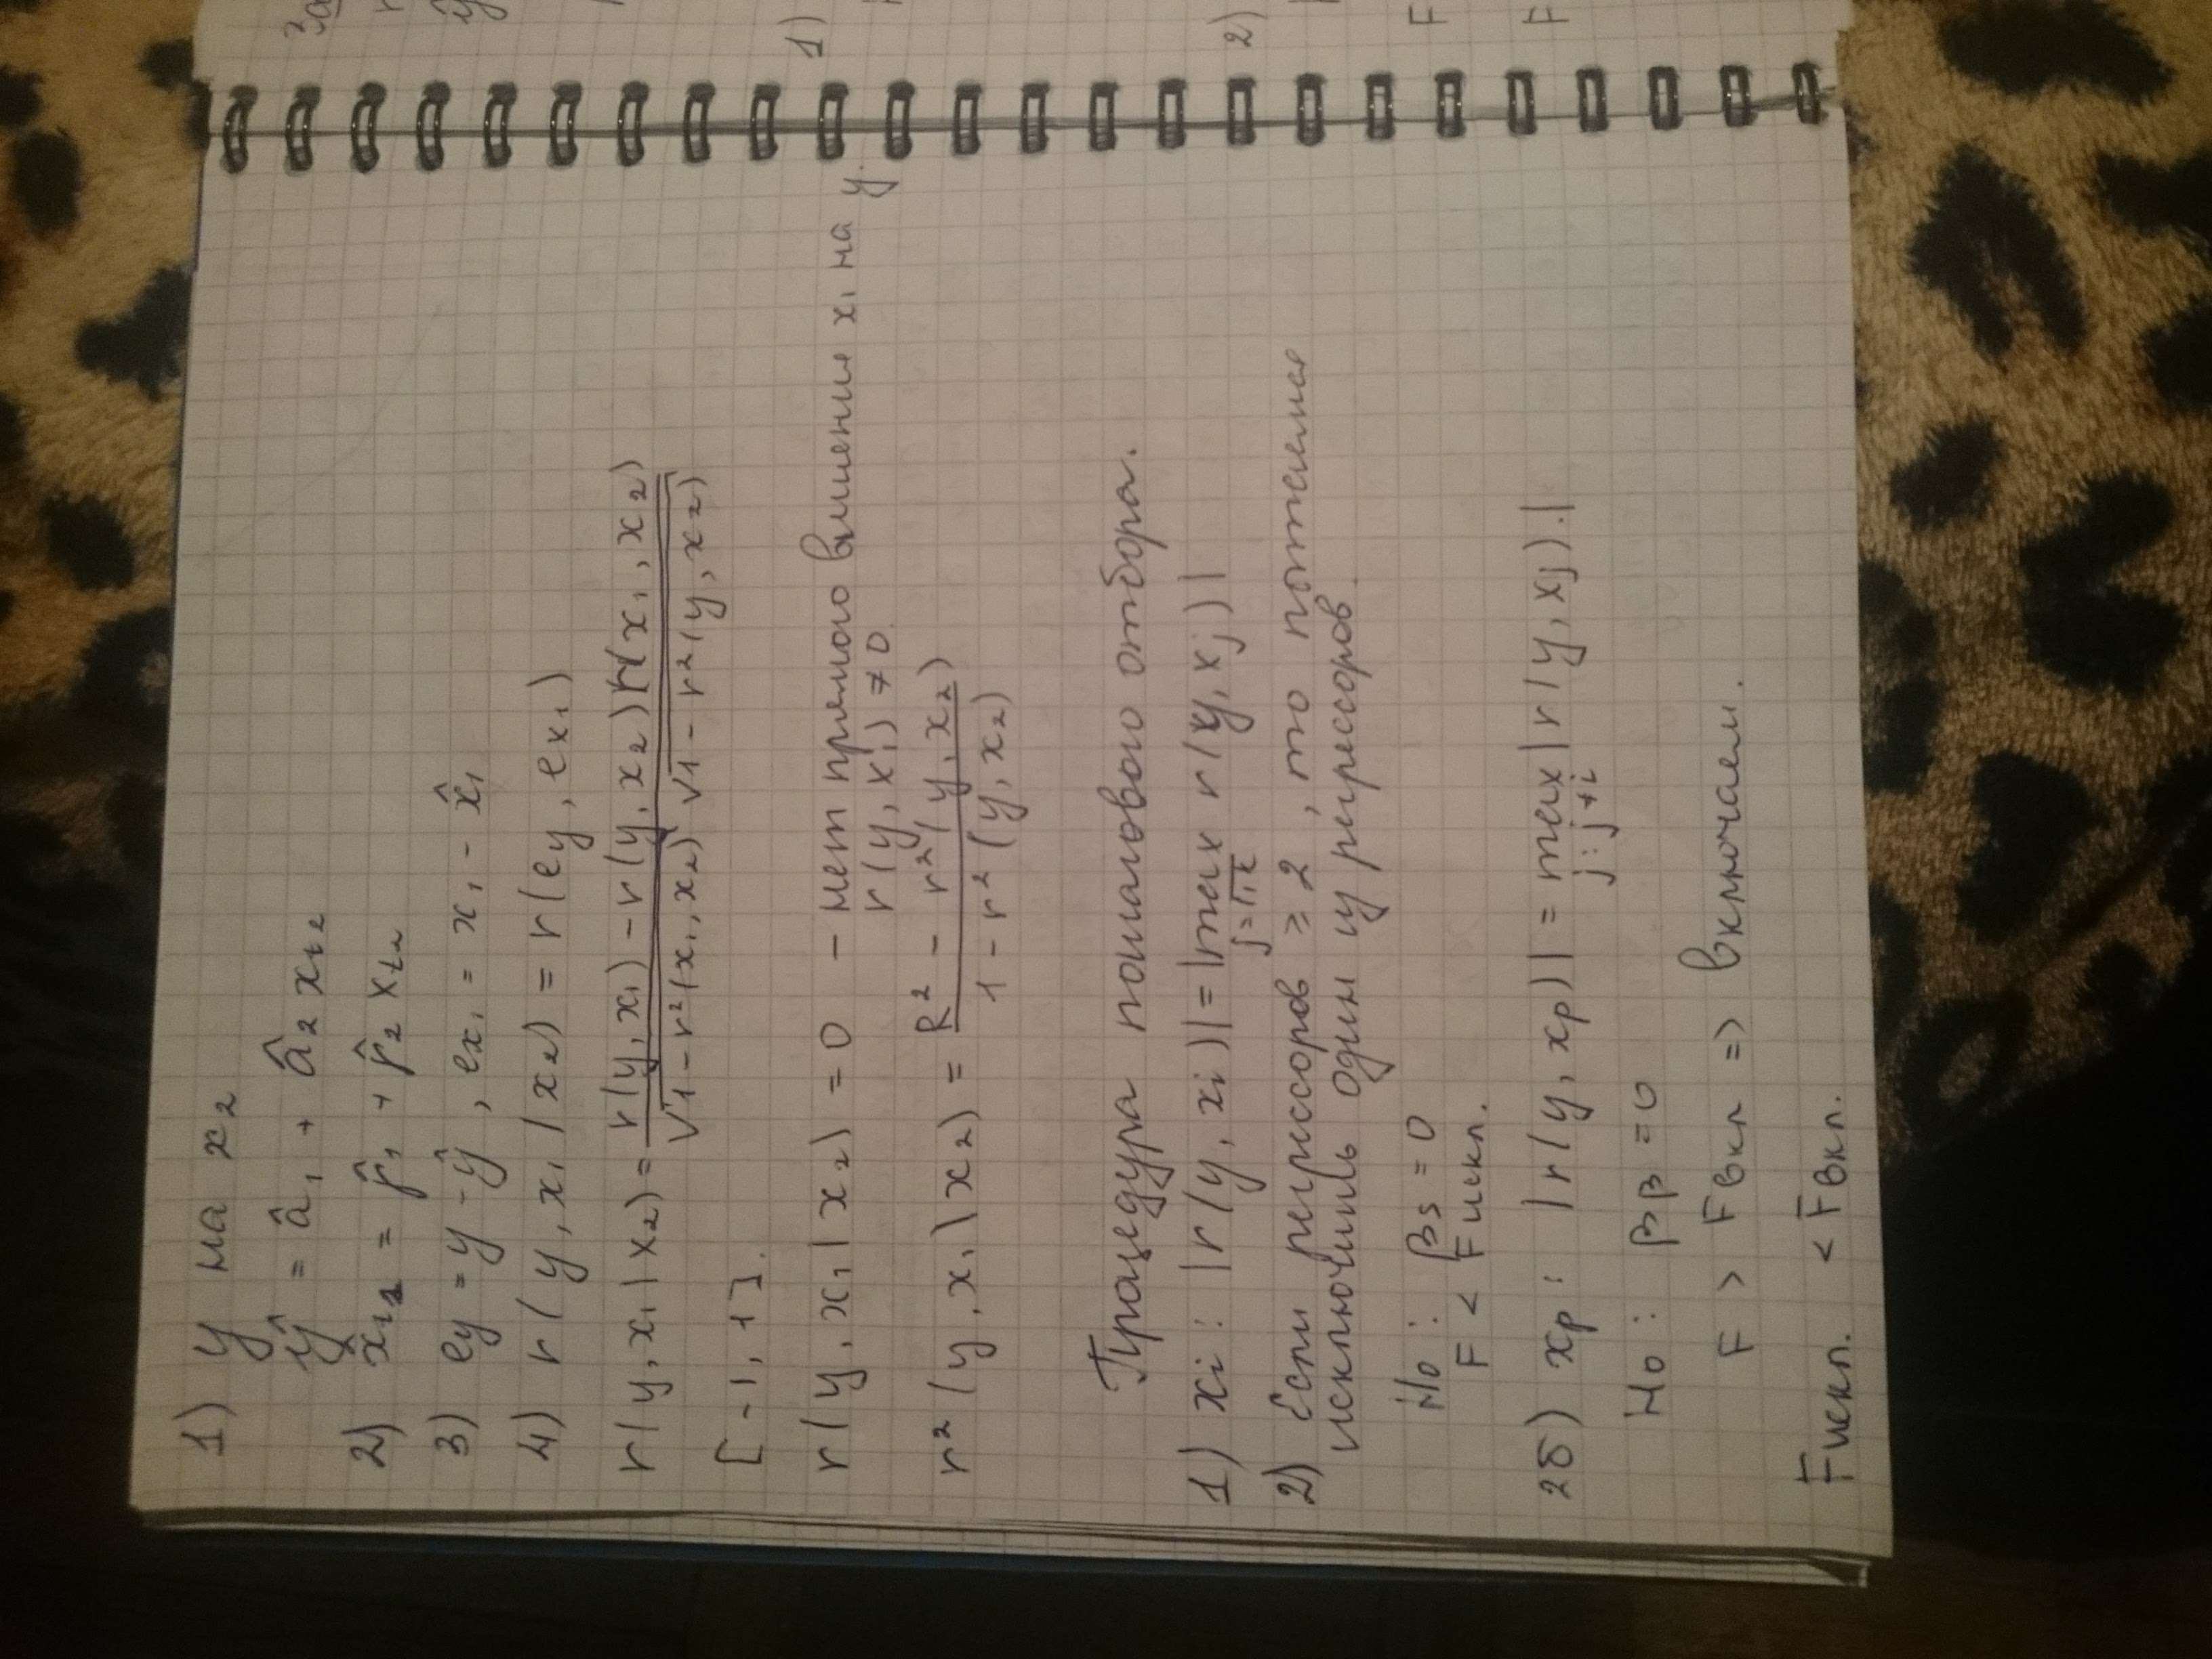 1) y на x₂
ŷ = â₁ + â₂ xₜ₂
2) x̂ₜ₁ = γ̂₁ + γ̂₂ xₜ₂
3) ey = y - ŷ , ex₁ = x₁ - x̂₁
4) r(y, x₁ | x₂) = r(ey, ex₁)
r(y, x₁ | x₂) = r(y, x₁) - r(y, x₂) r(x₁, x₂)
√1 - r²(x₁, x₂) √1 - r²(y, x₂)
[-1, 1].
r(y, x₁ | x₂) = 0 - нет прямого влияния x₁ на y.
r(y, x₁) ≠ 0.
r²(y, x₁ \ x₂) = R² - r²(y, x₂)
1 - r²(y, x₂)
Процедура пошагового отбора.
1) xi : |r(y, xi)| = |max r(y, xj)|
j=1,k
2) Если регрессоров ≥ 2, то попытаемся
исключить один из регрессоров.
H₀ : βs = 0
F < Fискл.
2б) xp : |r(y, xp)| = max |r(y, xj).|
j : j≠i
H₀ : βp = 0
F > Fвкл => включаем.
Fискл. < Fвкл.
За
1)
2)
F
F